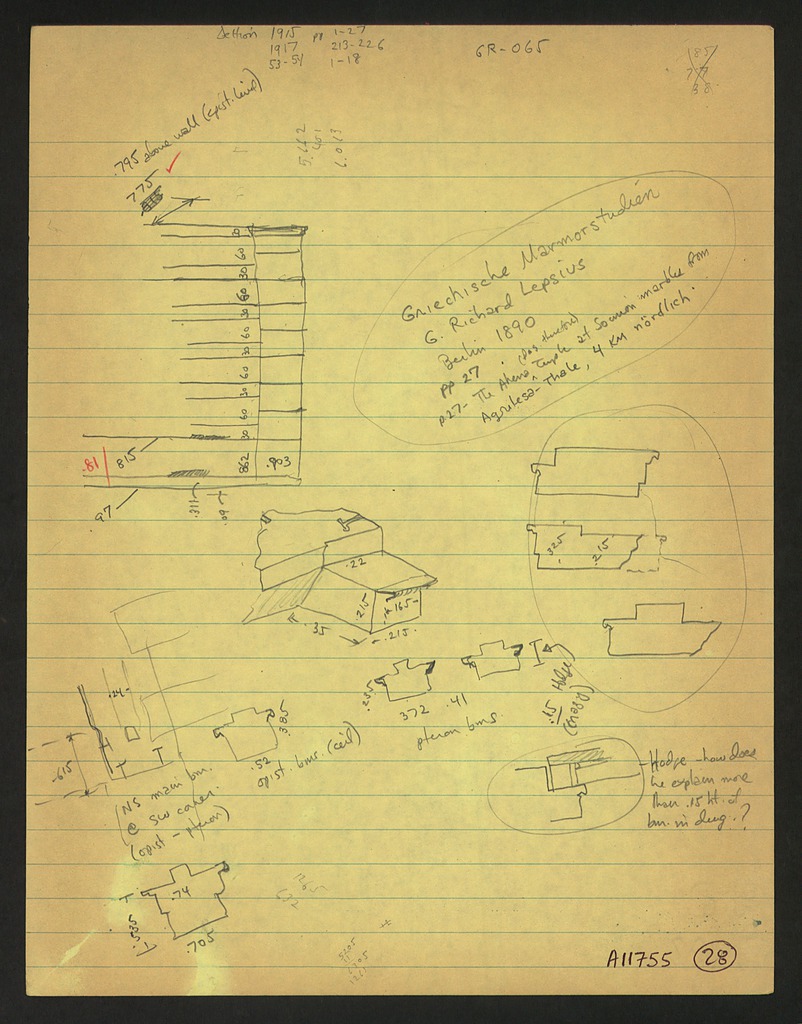 1915 pp 1-27
1917 213-226
53-54 1-18
GR-065
185
38
.795 above wall (epist. level)
775
5.612
401
6.013
Griechische Marmorstudien
G. Richard Lepsius
Berlin 1890
pp 27
p.27- The Athena Temple at Sounion marble from
Agrilesa-Thale, 4 KM nördlich.
60
30
60
30
60
30
60
30
60
30
.81
815
862
.903
.97
.311
.09
.22
.215
.165
.35
.215
.325
.215
.24
.615
.235
372
.41
pteron bms.
.15 Hodge
.385
.52
opist. bms. (ceil)
NS main bm.
@ SW corner
(opist - pteron)
-Hodge -how does
he explain more
than .15 ht. of
bm. in dwg.?
.74
.535
.705
A11755 28